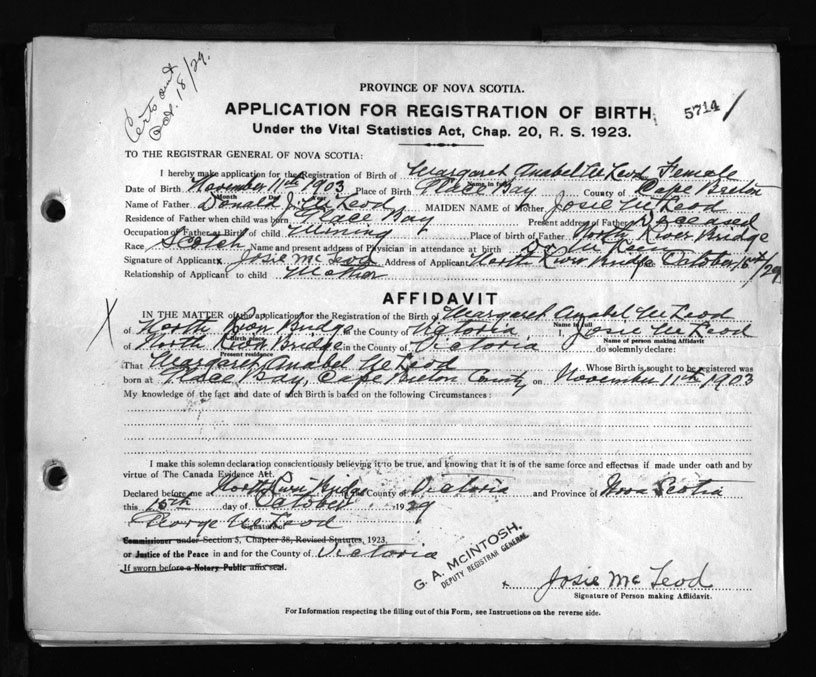 Certs and
Oct. 18/29.
PROVINCE OF NOVA SCOTIA.
APPLICATION FOR REGISTRATION OF BIRTH
5714 /
Under the Vital Statistics Act, Chap. 20, R. S. 1923.
TO THE REGISTRAR GENERAL OF NOVA SCOTIA:
I hereby make application for the Registration of Birth of Margaret Anabel McLeod Female
Name in full
Date of Birth November 11th 1903 Place of Birth Glace Bay County of Cape Breton
Month Day Year
Name of Father Donald J. McLeod MAIDEN NAME of Mother Josie McLeod
Residence of Father when child was born Glace Bay Present address of Father Deceased
Occupation of Father at Birth of child Mining Place of birth of Father North River Bridge
Race Scotch Name and present address of Physician in attendance at birth Dr McKeen
Signature of Applicant x Josie McLeod Address of Applicant North River Bridge October 15th/29
Relationship of Applicant to child Mother
AFFIDAVIT
X
IN THE MATTER of the application for the Registration of the Birth of Margaret Anabel McLeod
Name in full
of North River Bridge in the County of Victoria, I, Josie McLeod
Birth place Name of person making Affidavit
of North River Bridge in the County of Victoria do solemnly declare:
Present residence
That Margaret Anabel McLeod Whose Birth is sought to be registered was
born at Glace Bay, Cape Breton County on November 11th 1903
My knowledge of the fact and date of such Birth is based on the following Circumstances:
I make this solemn declaration conscientiously believing it to be true, and knowing that it is of the same force and effect as if made under oath and by
virtue of The Canada Evidence Act.
Declared before me at North River Bridge in the County of Victoria and Province of Nova Scotia
this 15th day of October 1929
George McLeod
Signature of
Commissioner under Section 5, Chapter 38, Revised Statutes, 1923.
or Justice of the Peace in and for the County of Victoria
If sworn before a Notary Public affix seal.
G. A. McINTOSH,
DEPUTY REGISTRAR GENERAL
x Josie McLeod
Signature of Person making Affidavit.
For Information respecting the filling out of this Form, see Instructions on the reverse side.